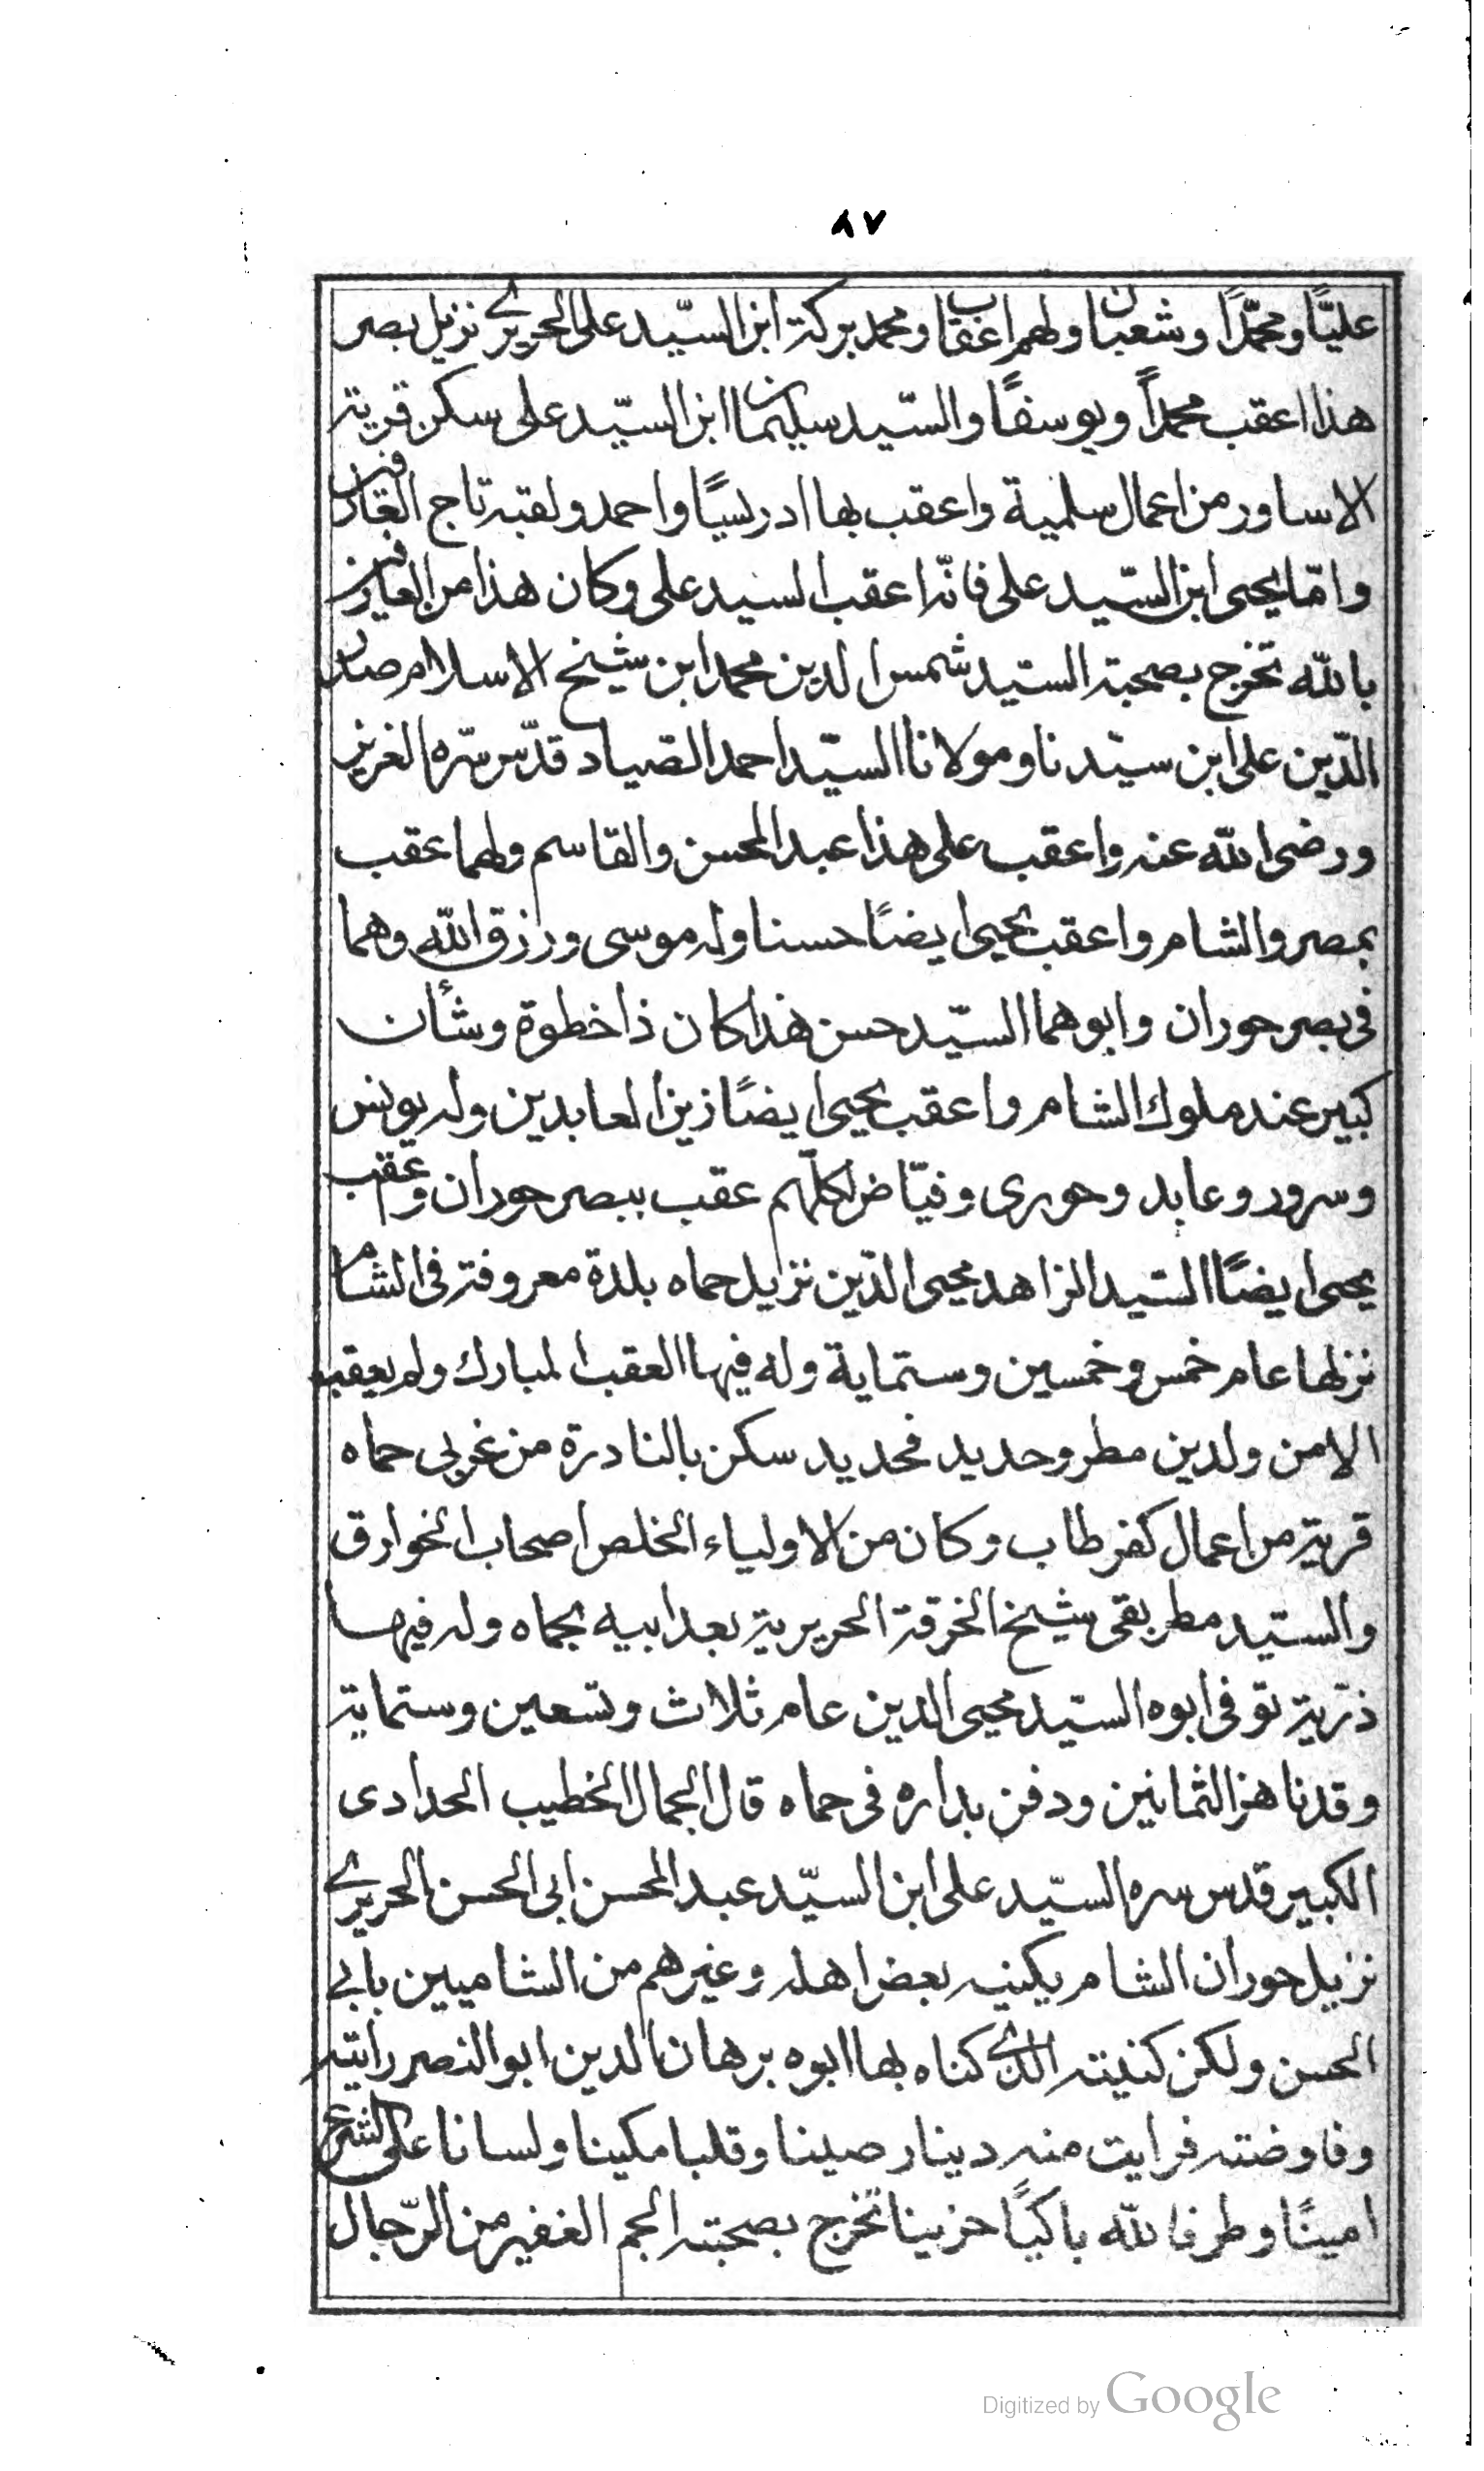 ٨٧
عليًّا ومحمّدًا وشعبان ولهم اعقاب ومحمد بركة ابن السيّد على الحريرى نزيل بصر
هذا اعقب محمداً ويوسفًا والسيّد سليمان ابن السيّد على سكن قرية
الاساور من اعمال سلمية واعقب بها ادريسًا واحمد ولقبه تاج العارفين
وامّا يحيى ابن السيّد على فانّه اعقب السيد على وكان هذا من العارفين
بالله تخرج بصحبة السيّد شمس الدين محمد ابن شيخ الاسلام صدر
الدّين على ابن سيّدنا ومولانا السيّد احمد الصّياد قدّس سّره العزيز
ورضى الله عنه واعقب على هذا عبد المحسن والقاسم ولهما عقب
بمصر والشام واعقب يحيى ايضًا حسنا وله موسى ورزق الله وهما
فى بصر حوران وابوهما السيّد حسن هذا كان ذا خطوة وشأن
كبير عند ملوك الشام واعقب يحيى ايضًا زين العابدين وله يونس
وسرور وعابد وحورى وفيّاض لكلّهم عقب ببصر حوران واعقب
يحيى ايضًا السّيد الزاهد محيى الدّين نزيل حماه بلدة معروفة فى الشام
نزلها عام خمس وخمسين وستماية وله فيها العقب المبارك ولم يعقب
الا من ولدين مطر وحديد فحديد سكن بالنادرة من غربى حماه
قرية من اعمال كفرطاب وكان من الاولياء الخلص اصحاب الخوارق
والسيّد مطر بقى شيخ الخرقة الحريرية بعد ابيه بحماه وله فيها
ذرّية توفى ابوه السيّد محيى الدين عام ثلاث وتسعين وستماية
وقد ناهز الثمانين ودفن بداره فى حماه قال الجمال الخطيب الحدادى
الكبير قدس سره السيّد على ابن السيّد عبد المحسن ابى الحسن الحريرى
نزيل حوران الشام يكنيه بعض اهله وغيرهم من الشاميين بابى
الحسن ولكن كنيته الذى كناه بها ابوه برهان الدين ابو النصر رايته
وفاوضته فرايت منه دينا رصينا وقلبا مكينا ولسانا على الشرع
امينًا وطرفا لله باكيًا حزينا تخرج بصحبته الجم الغفير من الرّجال
Digitized by Google